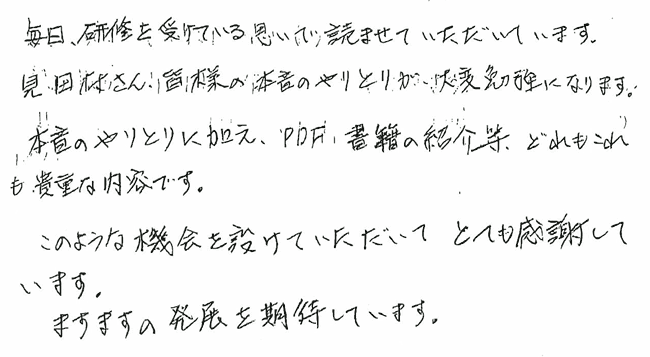 毎日、研修を受けている思いで読ませていただいています。
見田村さん、皆様の本音のやりとりが、大変勉強になります。
本音のやりとりに加え、PDF、書籍の紹介等、どれもこれ
も貴重な内容です。
このような機会を設けていただいて とても感謝して
います。
ますますの発展を期待しています。